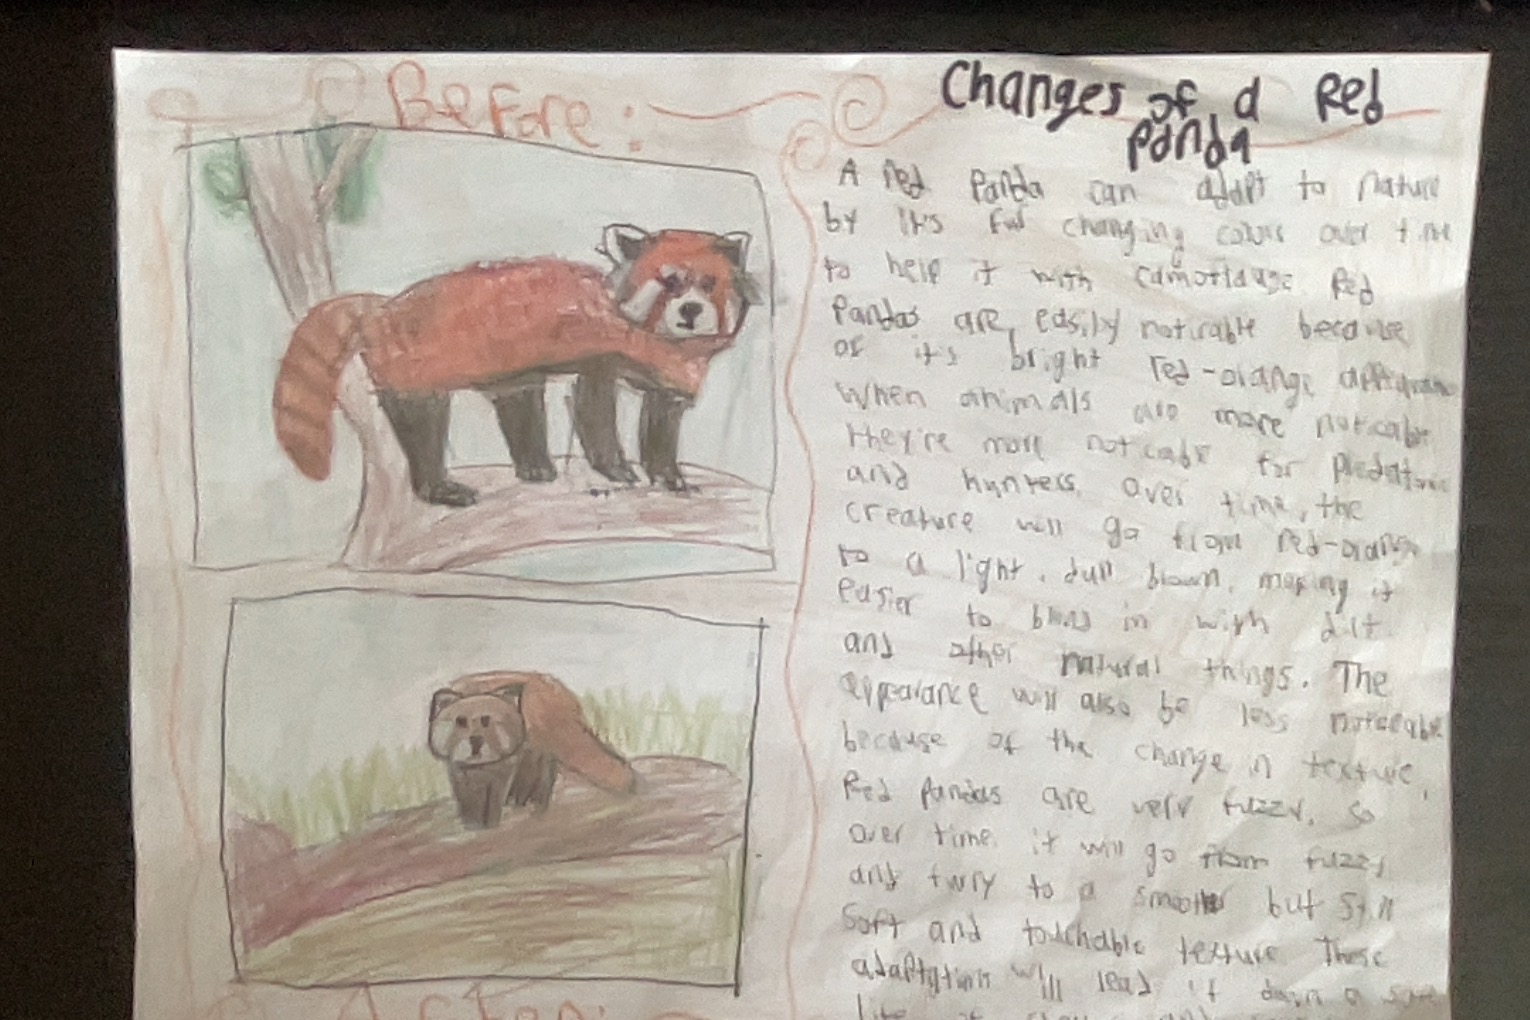 Before:
Changes of a Red
Panda
A Red Panda can adapt to nature
by it's fur changing colors over time
to help it with camoflauge. Red
Pandas are easily noticable because
of it's bright red-orange
When animals are more noticable
they're more noticable for predators
and hunters. Over time, the
creature will go from red-orange
to a light, dull brown, making it
easier to blend in with dirt
and other natural things. The
appearance will also be less noticable
because of the change in texture.
Red Pandas are very fuzzy, so
over time, it will go from fuzzy
and furry to a smooth but still
soft and touchable texture. These
adaptations will lead it down a safe
life of
After: